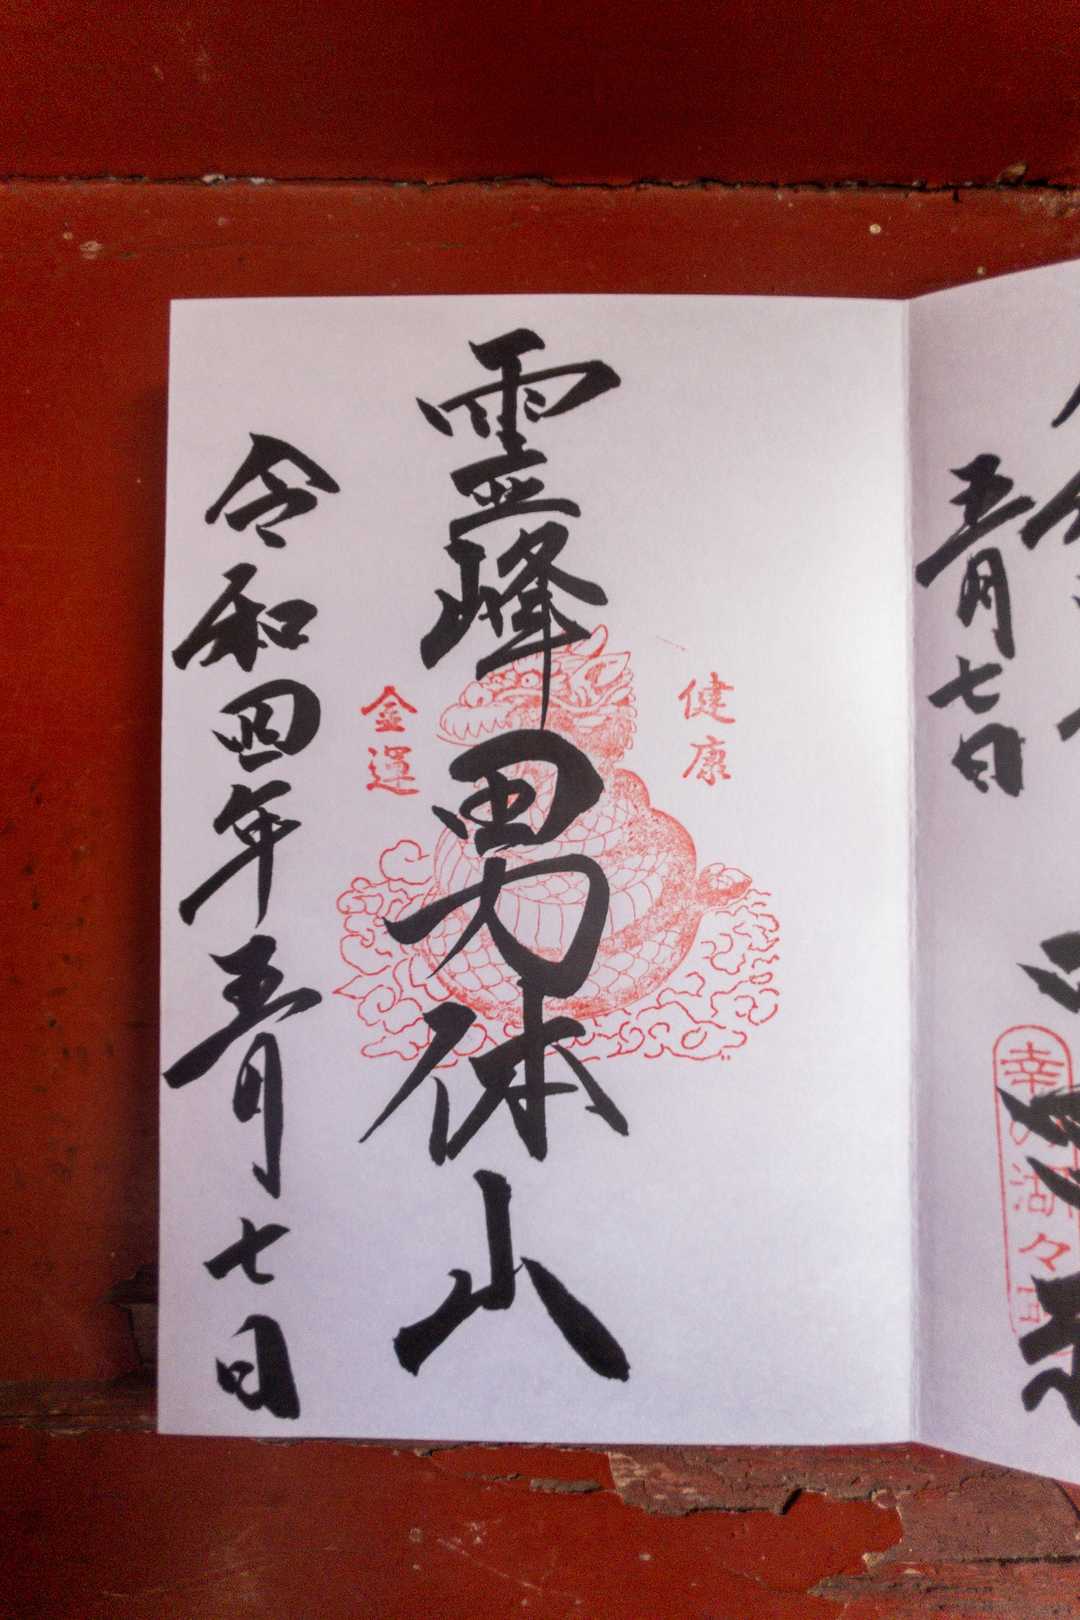 幸の湖々
五月七日
健康
霊峰男体山
金運
令和四年五月七日